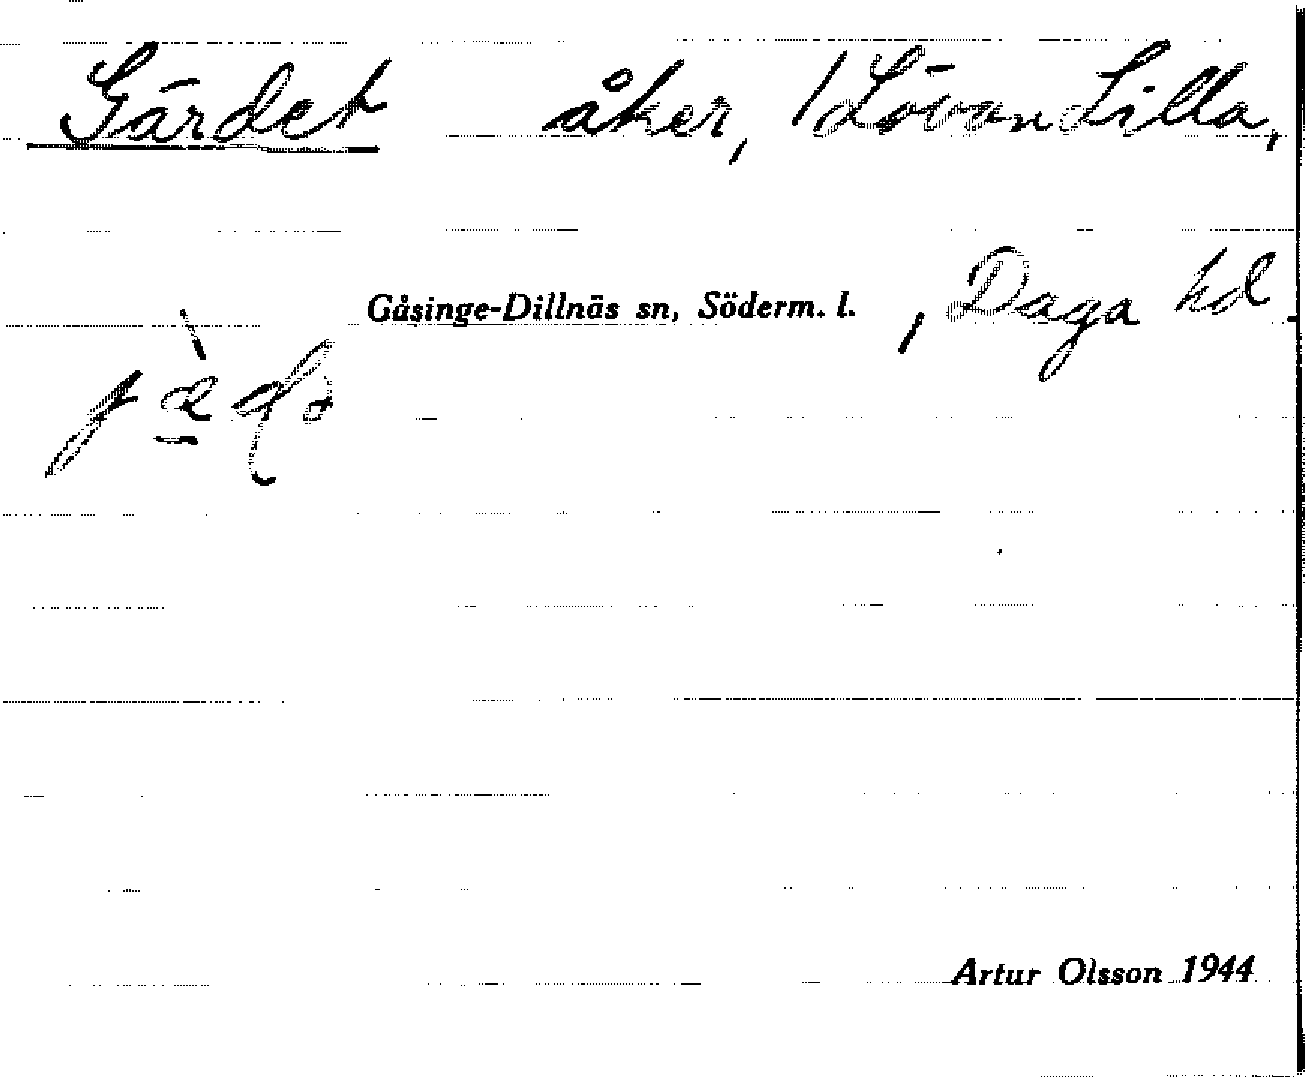 Gärdet åker, 1 Lövan Lilla,
Gåsinge-Dillnäs sn, Söderm. l. , Daga hd.
Artur Olsson 1944